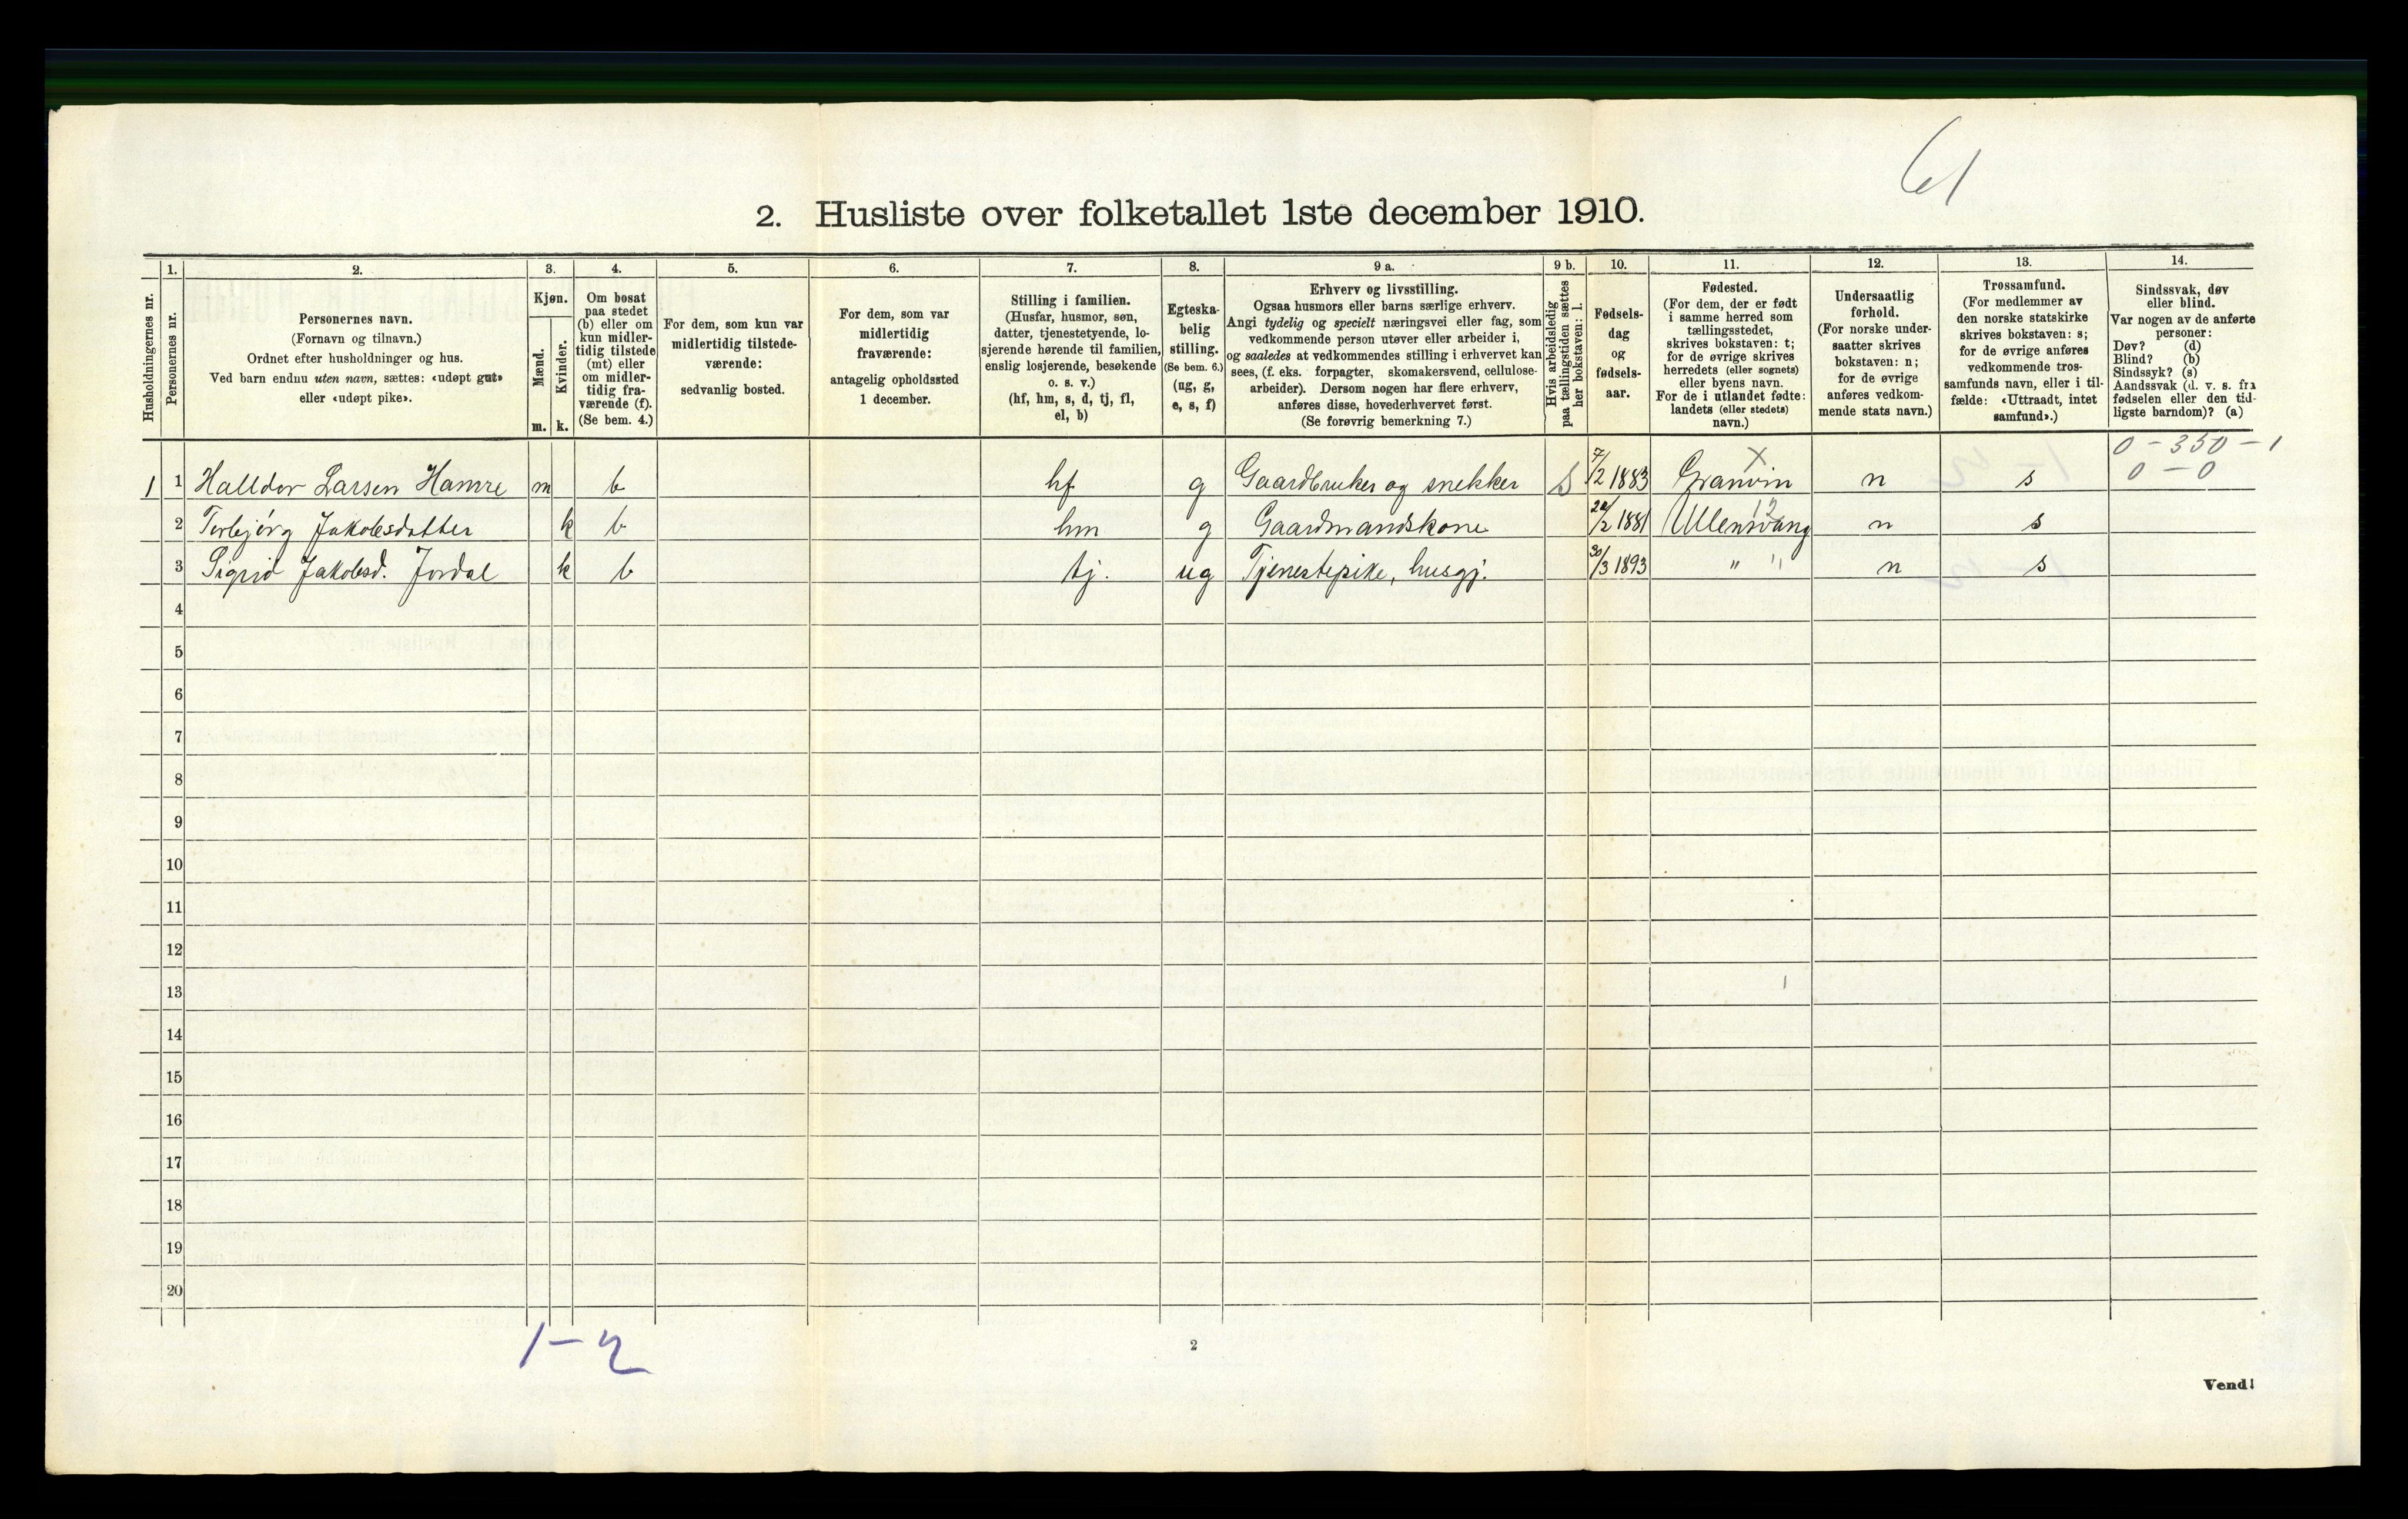 61
2. Husliste over folketallet 1ste december 1910.
Husholdningernes nr.
1.
Personernes nr.
2.
Personernes navn.
(Fornavn og tilnavn.)
Ordnet efter husholdninger og hus.
Ved barn endnu uten navn, sættes: «udøpt gut»
eller «udøpt pike».
3.
Kjøn.
Mænd.
Kvinder.
m. k.
4.
Om bosat
paa stedet
(b) eller om
kun midler-
tidig tilstede
(mt) eller
om midler-
tidig fra-
værende (f).
(Se bem. 4.)
5.
For dem, som kun var
midlertidig tilstede-
værende:
sedvanlig bosted.
6.
For dem, som var
midlertidig
fraværende:
antagelig opholdssted
1 december.
7.
Stilling i familien.
(Husfar, husmor, søn,
datter, tjenestetyende, lo-
sjerende hørende til familien,
enslig losjerende, besøkende
o. s. v.)
(hf, hm, s, d, tj, fl,
el, b)
8.
Egteska-
belig
stilling.
(Se bem. 6.)
(ug, g,
e, s, f)
9 a.
Erhverv og livsstilling.
Ogsaa husmors eller barns særlige erhverv.
Angi tydelig og specielt næringsvei eller fag, som
vedkommende person utøver eller arbeider i,
og saaledes at vedkommendes stilling i erhvervet kan
sees, (f. eks. forpagter, skomakersvend, cellulose-
arbeider). Dersom nogen har flere erhverv,
anføres disse, hovederhvervet først.
(Se forøvrig bemerkning 7.)
9 b.
Hvis arbeidsledig
paa tællingstiden sættes
her bokstaven: l.
10.
Fødsels-
dag
og
fødsels-
aar.
11.
Fødested.
(For dem, der er født
i samme herred som
tællingsstedet,
skrives bokstaven: t;
for de øvrige skrives
herredets (eller sognets)
eller byens navn.
For de i utlandet fødte:
landets (eller stedets)
navn.)
12.
Undersaatlig
forhold.
(For norske under-
saatter skrives
bokstaven: n;
for de øvrige
anføres vedkom-
mende stats navn.)
13.
Trossamfund.
(For medlemmer av
den norske statskirke
skrives bokstaven: s;
for de øvrige anføres
vedkommende tros-
samfunds navn, eller i til-
fælde: «Uttraadt, intet
samfund».)
14.
Sindssvak, døv
eller blind.
Var nogen av de anførte
personer:
Døv? (d)
Blind? (b)
Sindssyk? (s)
Aandssvak (d. v. s. fra
fødselen eller den tid-
ligste barndom)? (a)
0 - 350 - 1
1 1 Halldor Larsen Hamre m b hf g Gaardbruker og snekker S 7/2 1883 Granvin X n s 0 - 0
2 Torbjörg Jakobsdatter k b hm g Gaardmandskone 1881 Ullensvang 12 n s
3 Sigrid Jakobsd. Jordal k b tj. ug Tjenestepike, husgj. 30/3 1893 " " n s
4
5
6
7
8
9
10
11
12
13
14
15
16
17
18
19
20
1-2
2
Vend!